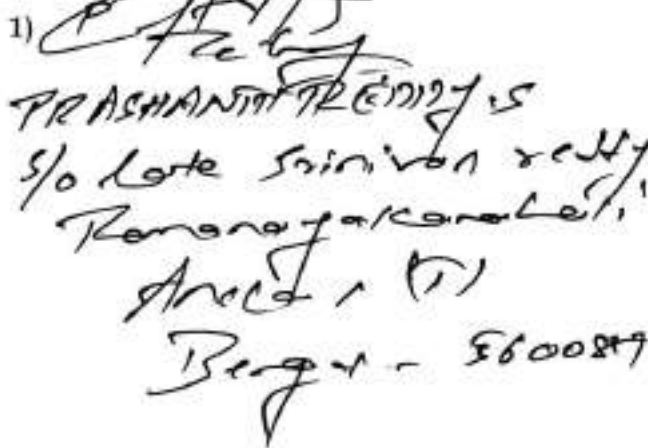 1)
PRASHANTH REDDY .S
S/o Late Srinivas reddy
Ramanayakanahalli
Anekal (T)
Bengal - 560087